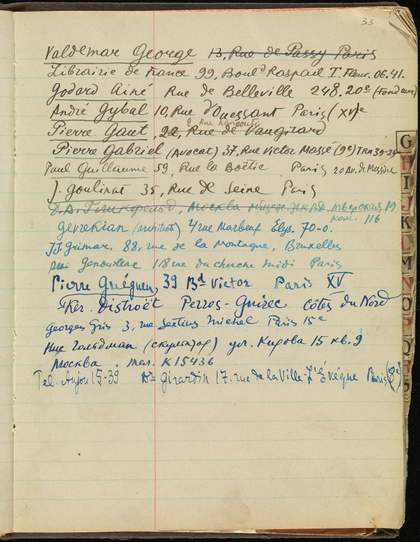 33
Valdemar George 13, Rue de Passy Paris
Librairie de France 99, Boul^d Raspail T. Fleur. 06.41.
Godard Aîné Rue de Bellville 248, 20e (Fondeur)
André Gybal 10, Rue d'Ouessant Paris (XVe
Pierre Gaut 22, Rue de Vaugirard
Pierre Gabriel (Avocat) 37, Rue Victor Massé (9e)
Paul Guillaume 59, Rue la Boëtie Paris
J. Goulinat 35, Rue de Seine Paris
Москва 19
ком. 116
Gevrekian (architect) 4 rue Marbeuf Elys. 70-0.
88, rue de la Montagne, Bruxelles
118 rue du cherche midi Paris
Pierre Guéguen, 39 Bd Victor Paris XV
Ker. Distroët Perros-Guirec Côtes du Nord
Georges Gris 3, rue Paris 15e
Гольдман (скульптор) ул. Кирова 15 кв. 9
Москва, тел. К 15436
Tel. Anjou 15-39 Dr Girardin 17. rue de la Ville-l'Évêque Paris (8e)
G
I
J
K
L
M
N
O
P
Q